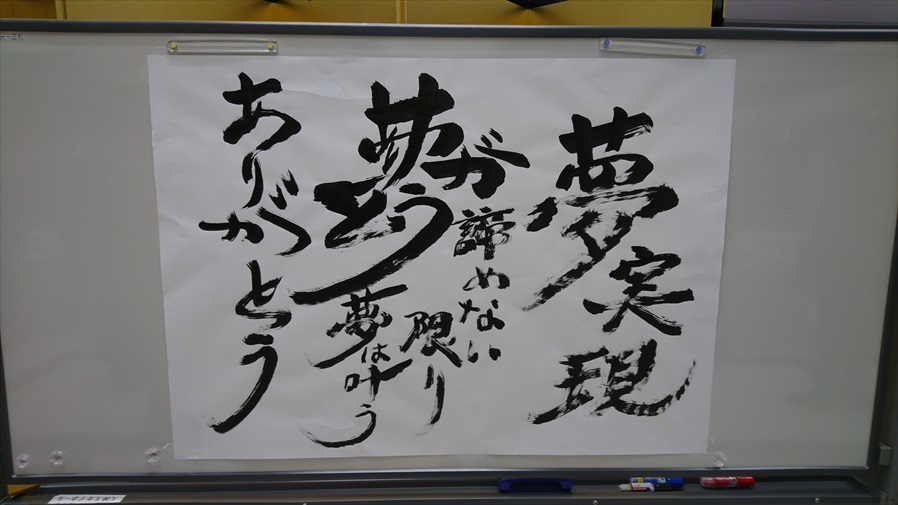 夢実現
ありがとう
諦めない
限り
夢は叶う
ありがとう